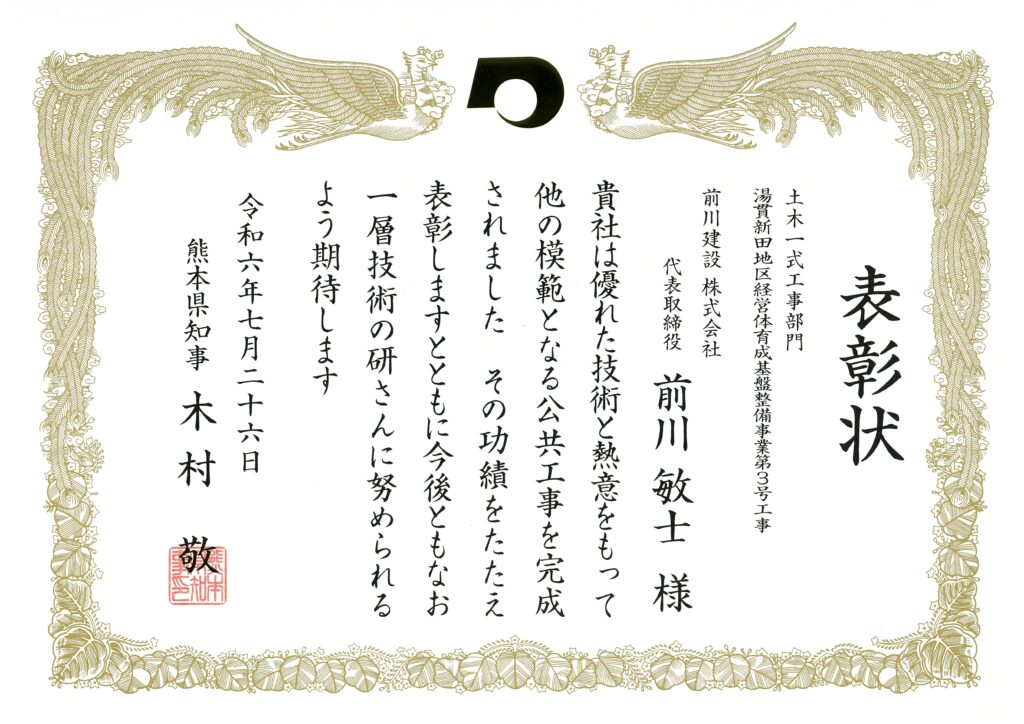 表彰状
土木一式工事部門
湯貫新田地区経営体育成基盤整備事業第3号工事
前川建設 株式会社
代表取締役 前川 敏士 様
貴社は優れた技術と熱意をもって
他の模範となる公共工事を完成
されました その功績をたたえ
表彰しますとともに今後ともなお
一層技術の研さんに努められる
よう期待します
令和六年七月二十六日
熊本県知事 木村 敬
熊本県知事印